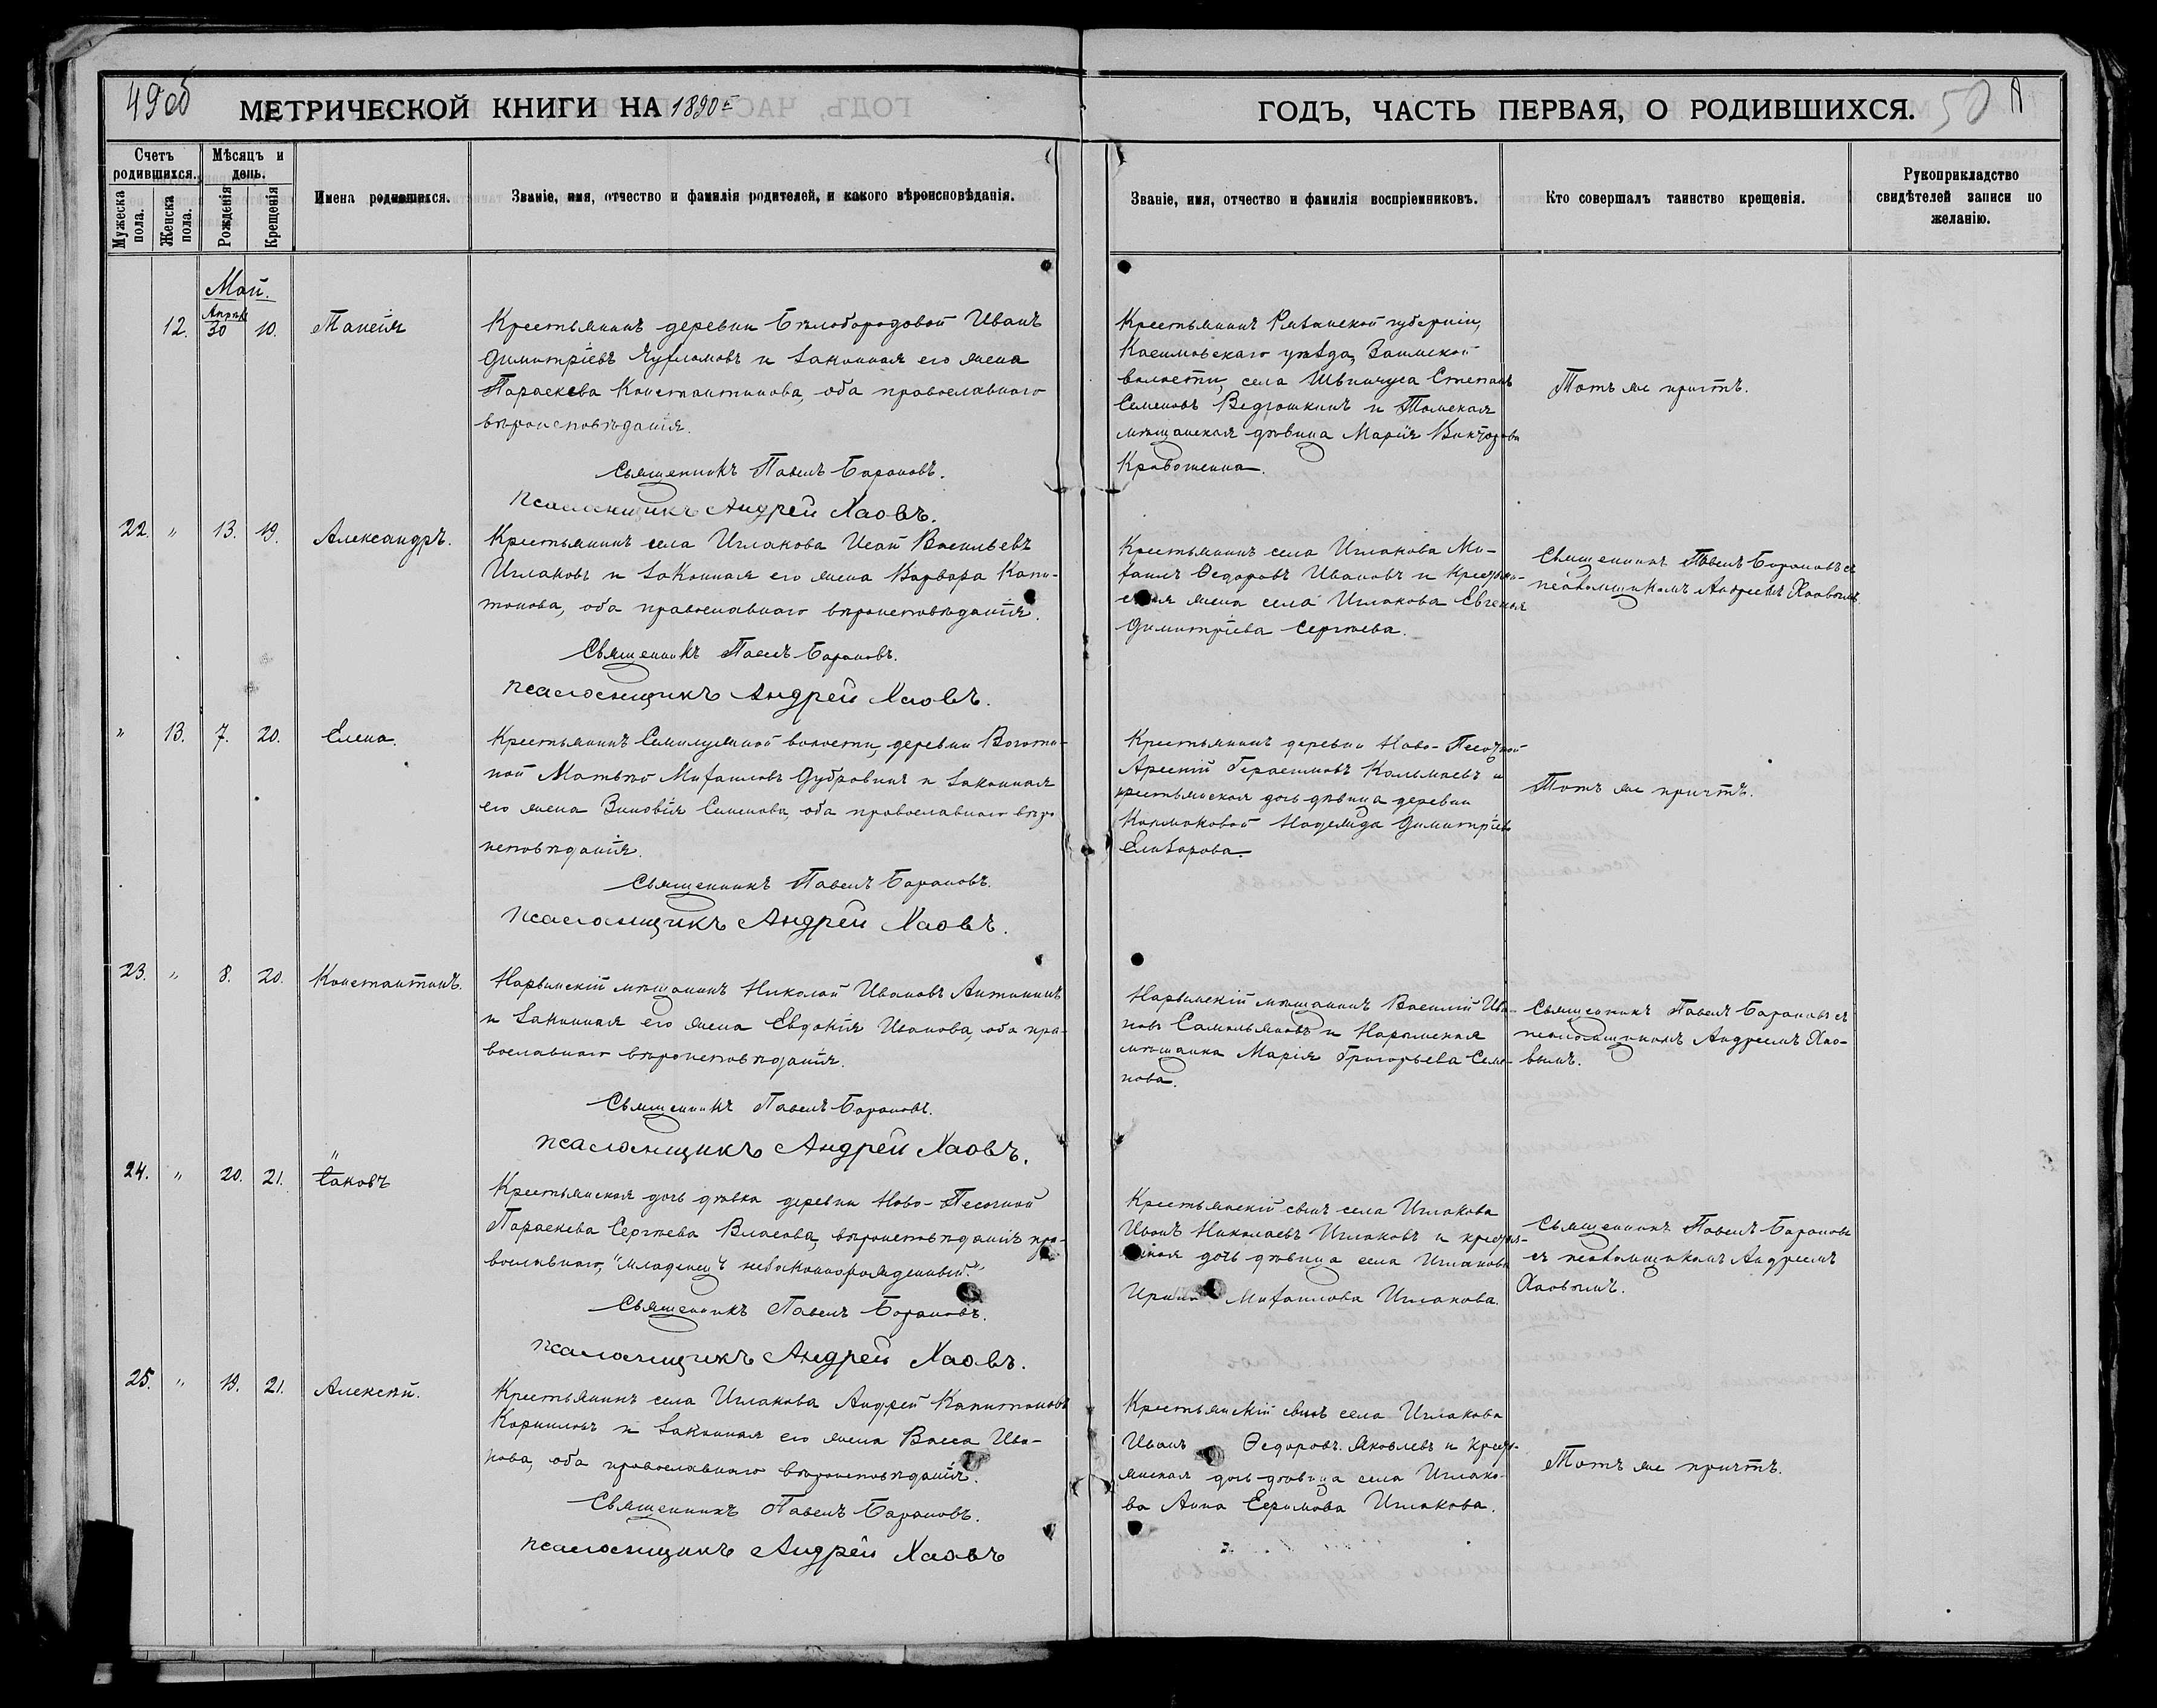 49 об
МЕТРИЧЕСКОЙ КНИГИ НА 1890 г.
ГОДЪ, ЧАСТЬ ПЕРВАЯ, О РОДИВШИХСЯ.
50
Счетъ родившихся.
Мѣсяцъ и день.
Мужеска пола.
Женска пола.
Рожденія
Крещенія
Имена родившихся.
Званіе, имя, отчество и фамилія родителей, и какого вѣроисповѣданія.
Званіе, имя, отчество и фамилія воспріемниковъ.
Кто совершалъ таинство крещенія.
Рукоприкладство свидѣтелей записи по желанію.
Май.
12. Апрѣл 30 10. Таисія
Крестьянинъ деревни Бѣлобородовой Иванъ
Димитріевъ и законная его жена
Параскева Константинова, оба православнаго
вѣроисповѣданія.
Священникъ Павелъ Барановъ.
Псаломщикъ Андрей Хаовъ.
Крестьянинъ Рязанской губерніи,
Касимовскаго уѣзда,
волости, села Степанъ
Семеновъ Ведяшкинъ и Томская
мѣщанская дѣвица Марія Викторова
Тотъ же причтъ.
22. " 13. 19. Александръ.
Крестьянинъ села Иглакова Исай Васильевъ
Иглаковъ и законная его жена Варвара Капи-
тонова, оба православнаго вѣроисповѣданія.
Священникъ Павелъ Барановъ.
Псаломщикъ Андрей Хаовъ.
Крестьянинъ села Иглакова Ми-
хаилъ Ѳедоровъ Ивановъ и крестьян-
ская жена села Иглакова Евгенія
Димитріева Сергѣева.
Священникъ Павелъ Барановъ съ
псаломщикомъ Андреемъ Хаовымъ.
" 13. 7. 20. Елена.
Крестьянинъ Семилужной волости, деревни Вороти-
ной Матвѣй Михаиловъ Дубровинъ и законная
его жена Зиновія Семенова, оба православнаго вѣро
исповѣданія.
Священникъ Павелъ Барановъ.
Псаломщикъ Андрей Хаовъ.
Крестьянинъ деревни Ново-Песочной
Арсеній Герасимовъ Колмаевъ и
крестьянская дочь дѣвица деревни
Кармаковой Надежда Димитріева
Елизарова.
Тотъ же причтъ.
23. " 8. 20. Константинъ.
Нарымскій мѣщанинъ Николай Ивановъ Антонинъ
и законная его жена Евдокія Иванова, оба пра-
вославнаго вѣроисповѣданія.
Священникъ Павелъ Барановъ.
Псаломщикъ Андрей Хаовъ.
Нарымскій мѣщанинъ Василій Ива-
новъ и Нарымская
мѣщанка Марія Григорьева Семе-
нова.
Священникъ Павелъ Барановъ съ
псаломщикомъ Андреемъ Хао-
вымъ.
24. " 20. 21. Іаковъ
Крестьянская дочь дѣвка деревни Ново-Песочной
Параскева Сергѣева Власова, вѣроисповѣданія пра-
вославнаго, "младенецъ незаконнорожденный."
Священникъ Павелъ Барановъ.
Псаломщикъ Андрей Хаовъ.
Крестьянскій сынъ села Иглакова
Иванъ Николаевъ Иглаковъ и крестья-
нская дочь дѣвица села Иглакова
Ирина Михаилова Иглакова.
Священникъ Павелъ Барановъ
съ псаломщикомъ Андреемъ
Хаовымъ.
25. " 19. 21. Алексѣй.
Крестьянинъ села Иглакова Андрей Капитоновъ
Корниловъ и законная его жена Васса Ива-
нова, оба православнаго вѣроисповѣданія.
Священникъ Павелъ Барановъ.
Псаломщикъ Андрей Хаовъ
Крестьянскій сынъ села Иглакова
Иванъ Ѳедоровъ Яковлевъ и кресть-
янская дочь-дѣвица села Иглако-
ва Анна Ефимова Иглакова.
Тотъ же причтъ.